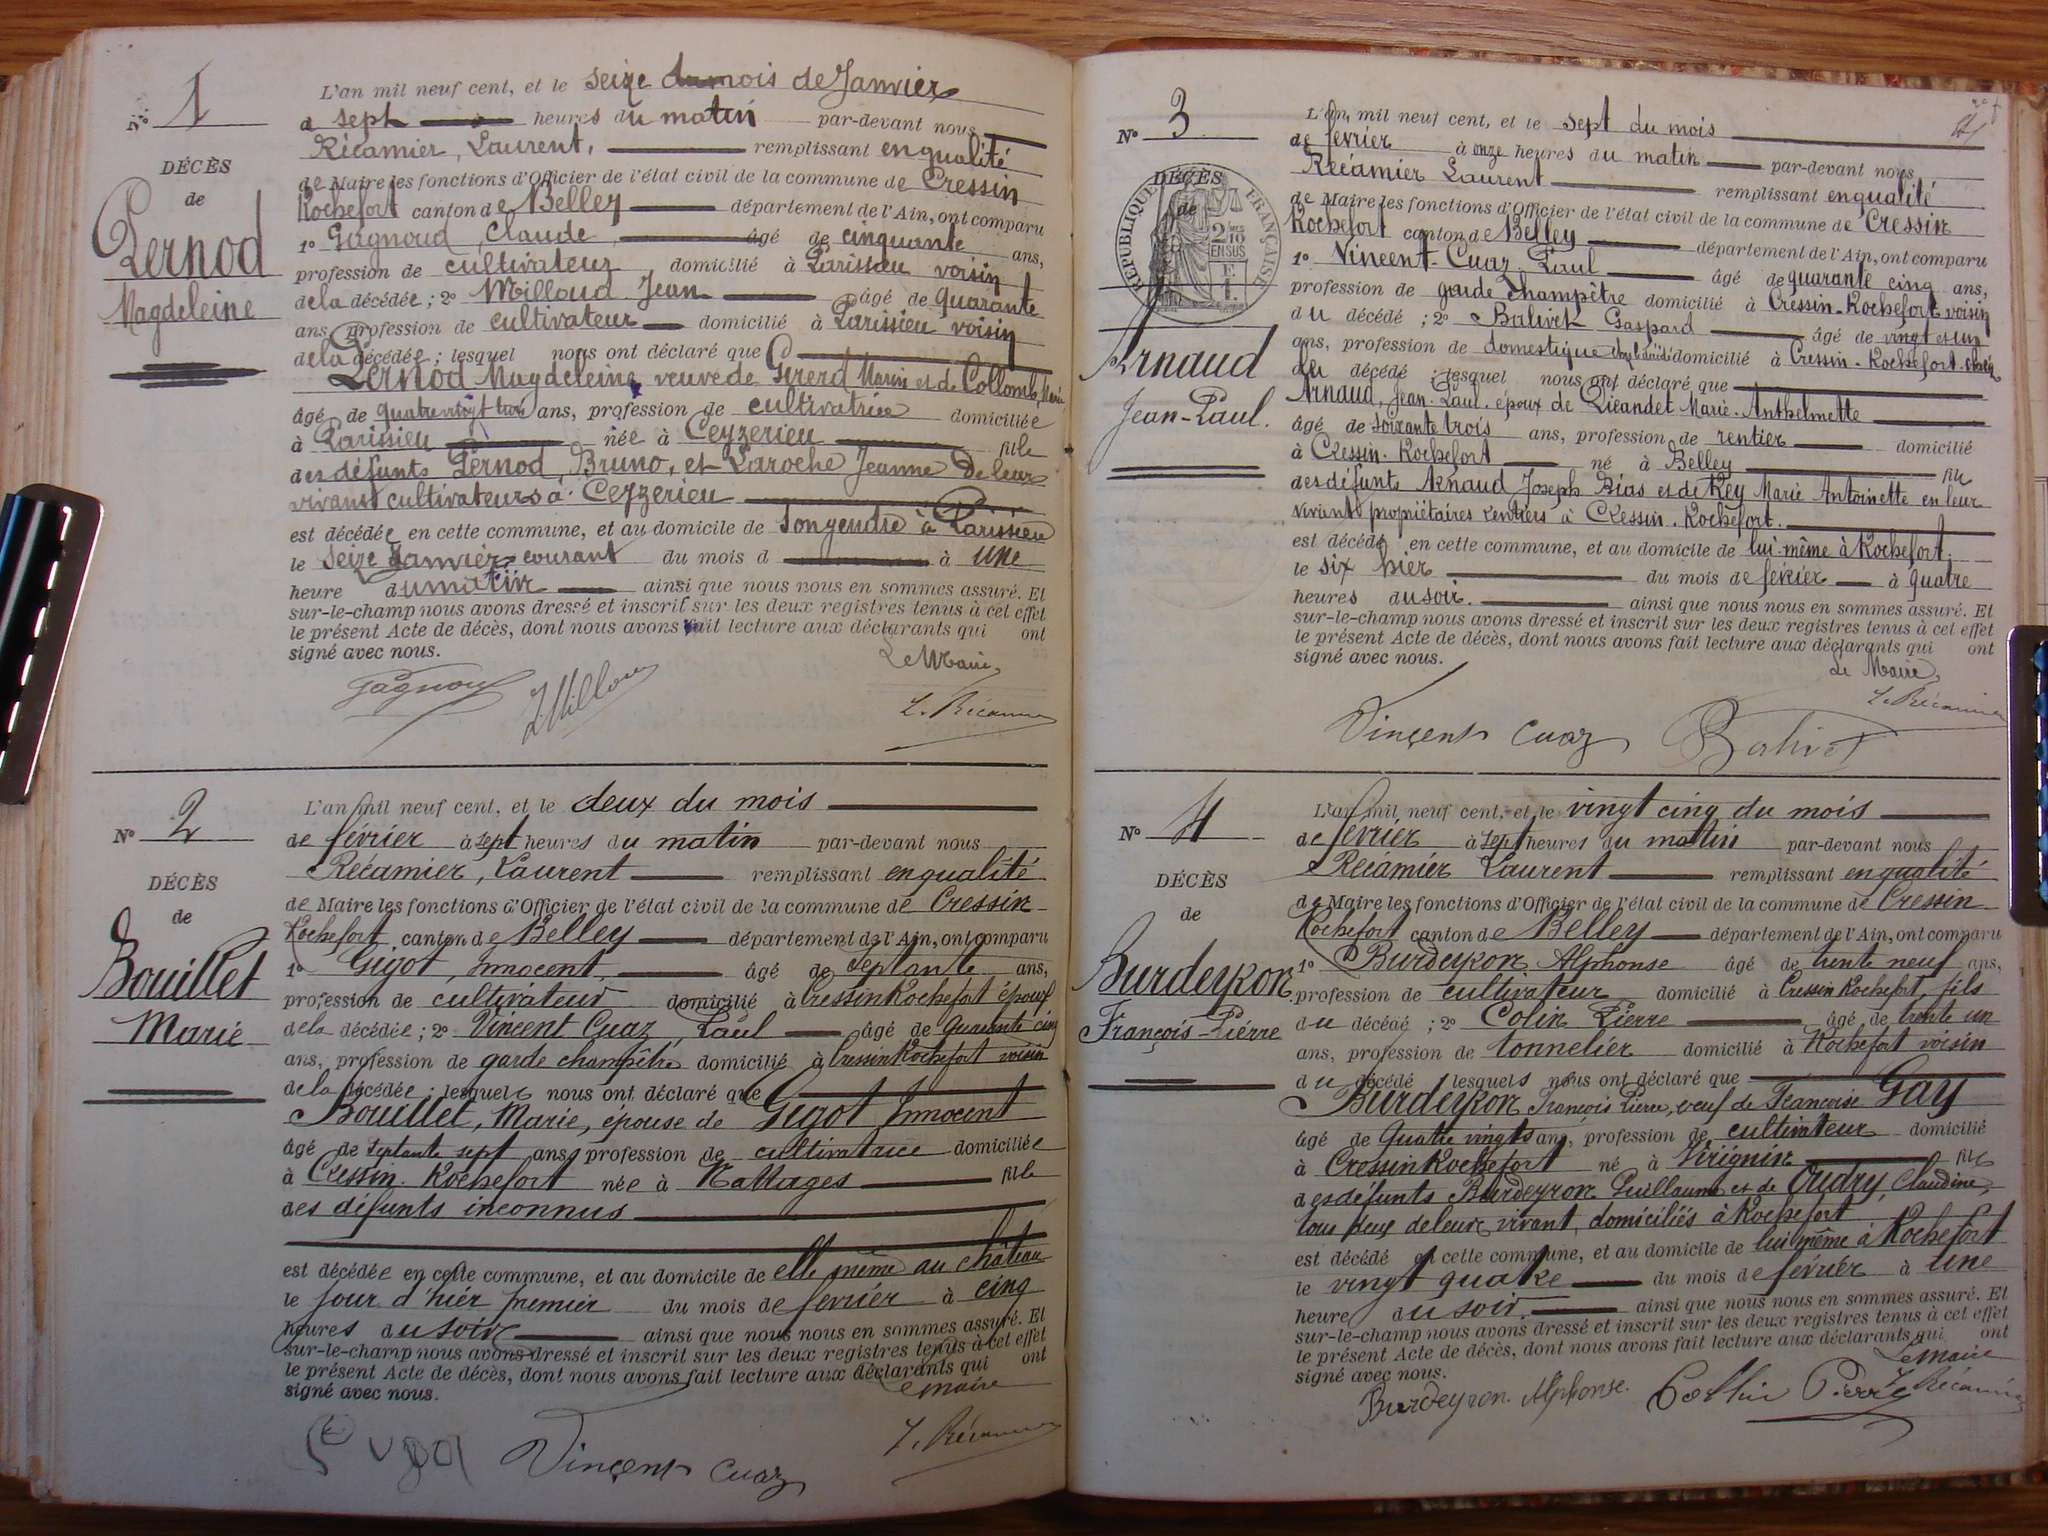 N° 1
DÉCÈS
de
Pernod
Magdeleine
L'an mil neuf cent, et le seize du mois de Janvier
à sept heures du matin par-devant nous
Récamier, Laurent, remplissant en qualité
de Maire les fonctions d'Officier de l'état civil de la commune de Cressin
Rochefort canton de Belley département de l'Ain, ont comparu
1° Gagnoud, Claude, âgé de cinquante ans,
profession de cultivateur domicilié à Parissieu voisin
de la décédée; 2° Milloud Jean âgé de quarante
ans, profession de cultivateur domicilié à Parissieu voisin
de la décédée; lesquel nous ont déclaré que
Pernod Magdeleine veuve de Girerd Marin et de Collomb Marie
âgé de quatre vingt trois ans, profession de cultivatrice domiciliée
à Parissieu née à Ceyzerieu fille
des défunts Pernod, Bruno, et Laroche Jeanne De leur
vivant cultivateurs à Ceyzerieu
est décédée en cette commune, et au domicile de son gendre à Parissieu
le seize Janvier courant du mois d à une
heure du matin ainsi que nous nous en sommes assuré. Et
sur-le-champ nous avons dressé et inscrit sur les deux registres tenus à cet effet
le présent Acte de décès, dont nous avons fait lecture aux déclarants qui ont
signé avec nous.
Le Maire,
Gagnoud J Milloud L. Récamier
N° 2
DÉCÈS
de
Bouillet
Marie
L'an mil neuf cent, et le deux du mois
de février à sept heures du matin par-devant nous
Récamier, Laurent remplissant en qualité
de Maire les fonctions d'Officier de l'état civil de la commune de Cressin
Rochefort canton de Belley département de l'Ain, ont comparu
1° Gigot, Innocent, âgé de septante ans,
profession de cultivateur domicilié à Cressin Rochefort époux
de la décédée; 2° Vincent Cuaz, Paul âgé de Quarante cinq
ans, profession de garde champêtre domicilié à Cressin Rochefort voisin
de la décédée; lesquels nous ont déclaré que
Bouillet, Marie, épouse de Gigot Innocent
âgé de septante sept ans, profession de cultivatrice domiciliée
à Cressin-Rochefort née à Nattages fille
des défunts inconnus
est décédée en cette commune, et au domicile de elle même au château
le jour d'hiér premier du mois de février à cinq
heures du soir ainsi que nous nous en sommes assuré. Et
sur-le-champ nous avons dressé et inscrit sur les deux registres tenus à cet effet
le présent Acte de décès, dont nous avons fait lecture aux déclarants qui ont
signé avec nous.
Le maire
Vinçent Cuaz L. Récamier
N° 3
DÉCÈS
de
RÉPUBLIQUE FRANÇAISE
2/10 EN SUS
Arnaud
Jean-Paul.
L'an mil neuf cent, et le sept du mois
de février à onze heures du matin par-devant nous
Recámier Laurent remplissant en qualité
de Maire les fonctions d'Officier de l'état civil de la commune de Cressin
Rochefort canton de Belley département de l'Ain, ont comparu
1° Vincent-Cuaz, Paul âgé de quarante cinq ans,
profession de garde champêtre domicilié à Cressin-Rochefort voisin
du décédé; 2° Balivet Gaspard âgé de vingt et un
ans, profession de domestique domicilié à Cressin-Rochefort
du décédé; lesquel nous ont déclaré que
Arnaud, Jean-Paul, époux de Picandet Marie-Anthelmette
âgé de soixante trois ans, profession de rentier domicilié
à Cressin-Rochefort né à Belley fils
des défunts Arnaud, Joseph Bias et de Rey Marie Antoinette en leur
vivant propriétaires rentiers à Cressin-Rochefort.
est décédé en cette commune, et au domicile de lui même à Rochefort.
le six hier du mois de février à quatre
heures du soir. ainsi que nous nous en sommes assuré. Et
sur-le-champ nous avons dressé et inscrit sur les deux registres tenus à cet effet
le présent Acte de décès, dont nous avons fait lecture aux déclarants qui ont
signé avec nous.
Le Maire,
L. Récamier
Vinçent Cuaz Balivet
N° 4
DÉCÈS
de
Burdeyron
François-Piérre
L'an mil neuf cent, et le vingt cinq du mois
de février à sept heures du matin par-devant nous
Récámiér Laurent remplissant en qualité
de Maire les fonctions d'Officier de l'état civil de la commune de Cressin
Rochefort canton de Belley département de l'Ain, ont comparu
1° Burdeyron Alphonse âgé de trente neuf ans,
profession de cultivateur domicilié à Cressin Rochefort, fils
du décédé; 2° Colin Pierre âgé de trente un
ans, profession de tonnelier domicilié à Rochefort voisin
du décédé lesquels nous ont déclaré que
Burdeyron François Pierre, veuf de Françoise Gay
âgé de Quatre vingts ans, profession de cultivateur domicilié
à Cressin Rochefort né à Virignin fils
des défunts Burdeyron Guillaume et de Oudry, Claudine,
tous deux de leur vivant domiciliés à Rochefort
est décédé en cette commune, et au domicile de lui même à Rochefort
le vingt quatre du mois de février à une
heure du soir. ainsi que nous nous en sommes assuré. Et
sur-le-champ nous avons dressé et inscrit sur les deux registres tenus à cet effet
le présent Acte de décès, dont nous avons fait lecture aux déclarants qui ont
signé avec nous.
Le maire
Burdeyron Alphonse. Collin Pierre L. Récamier